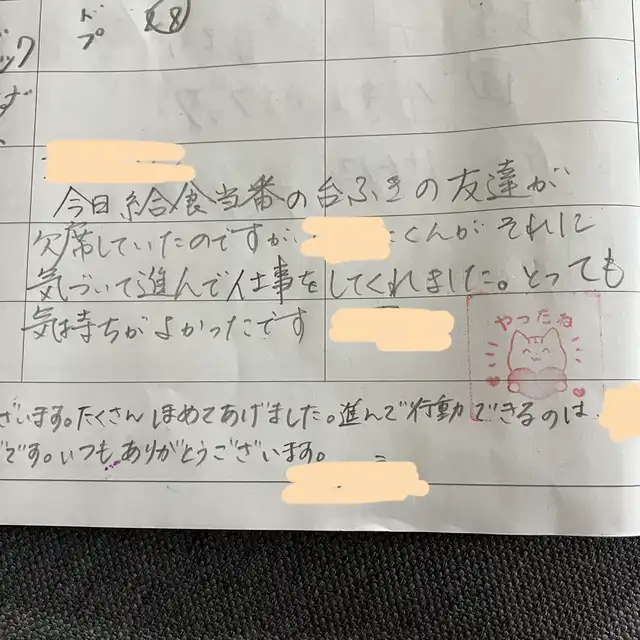 ド
プ
28
ック
ず
今日給食当番の台ふきの友達が
欠席していたのですが、くんがそれに
気づいて進んで仕事をしてくれました。とっても
気持ちがよかったです
やったね
ざいます。たくさんほめてあげました。進んで行動できるのは、
です。いつもありがとうございます。